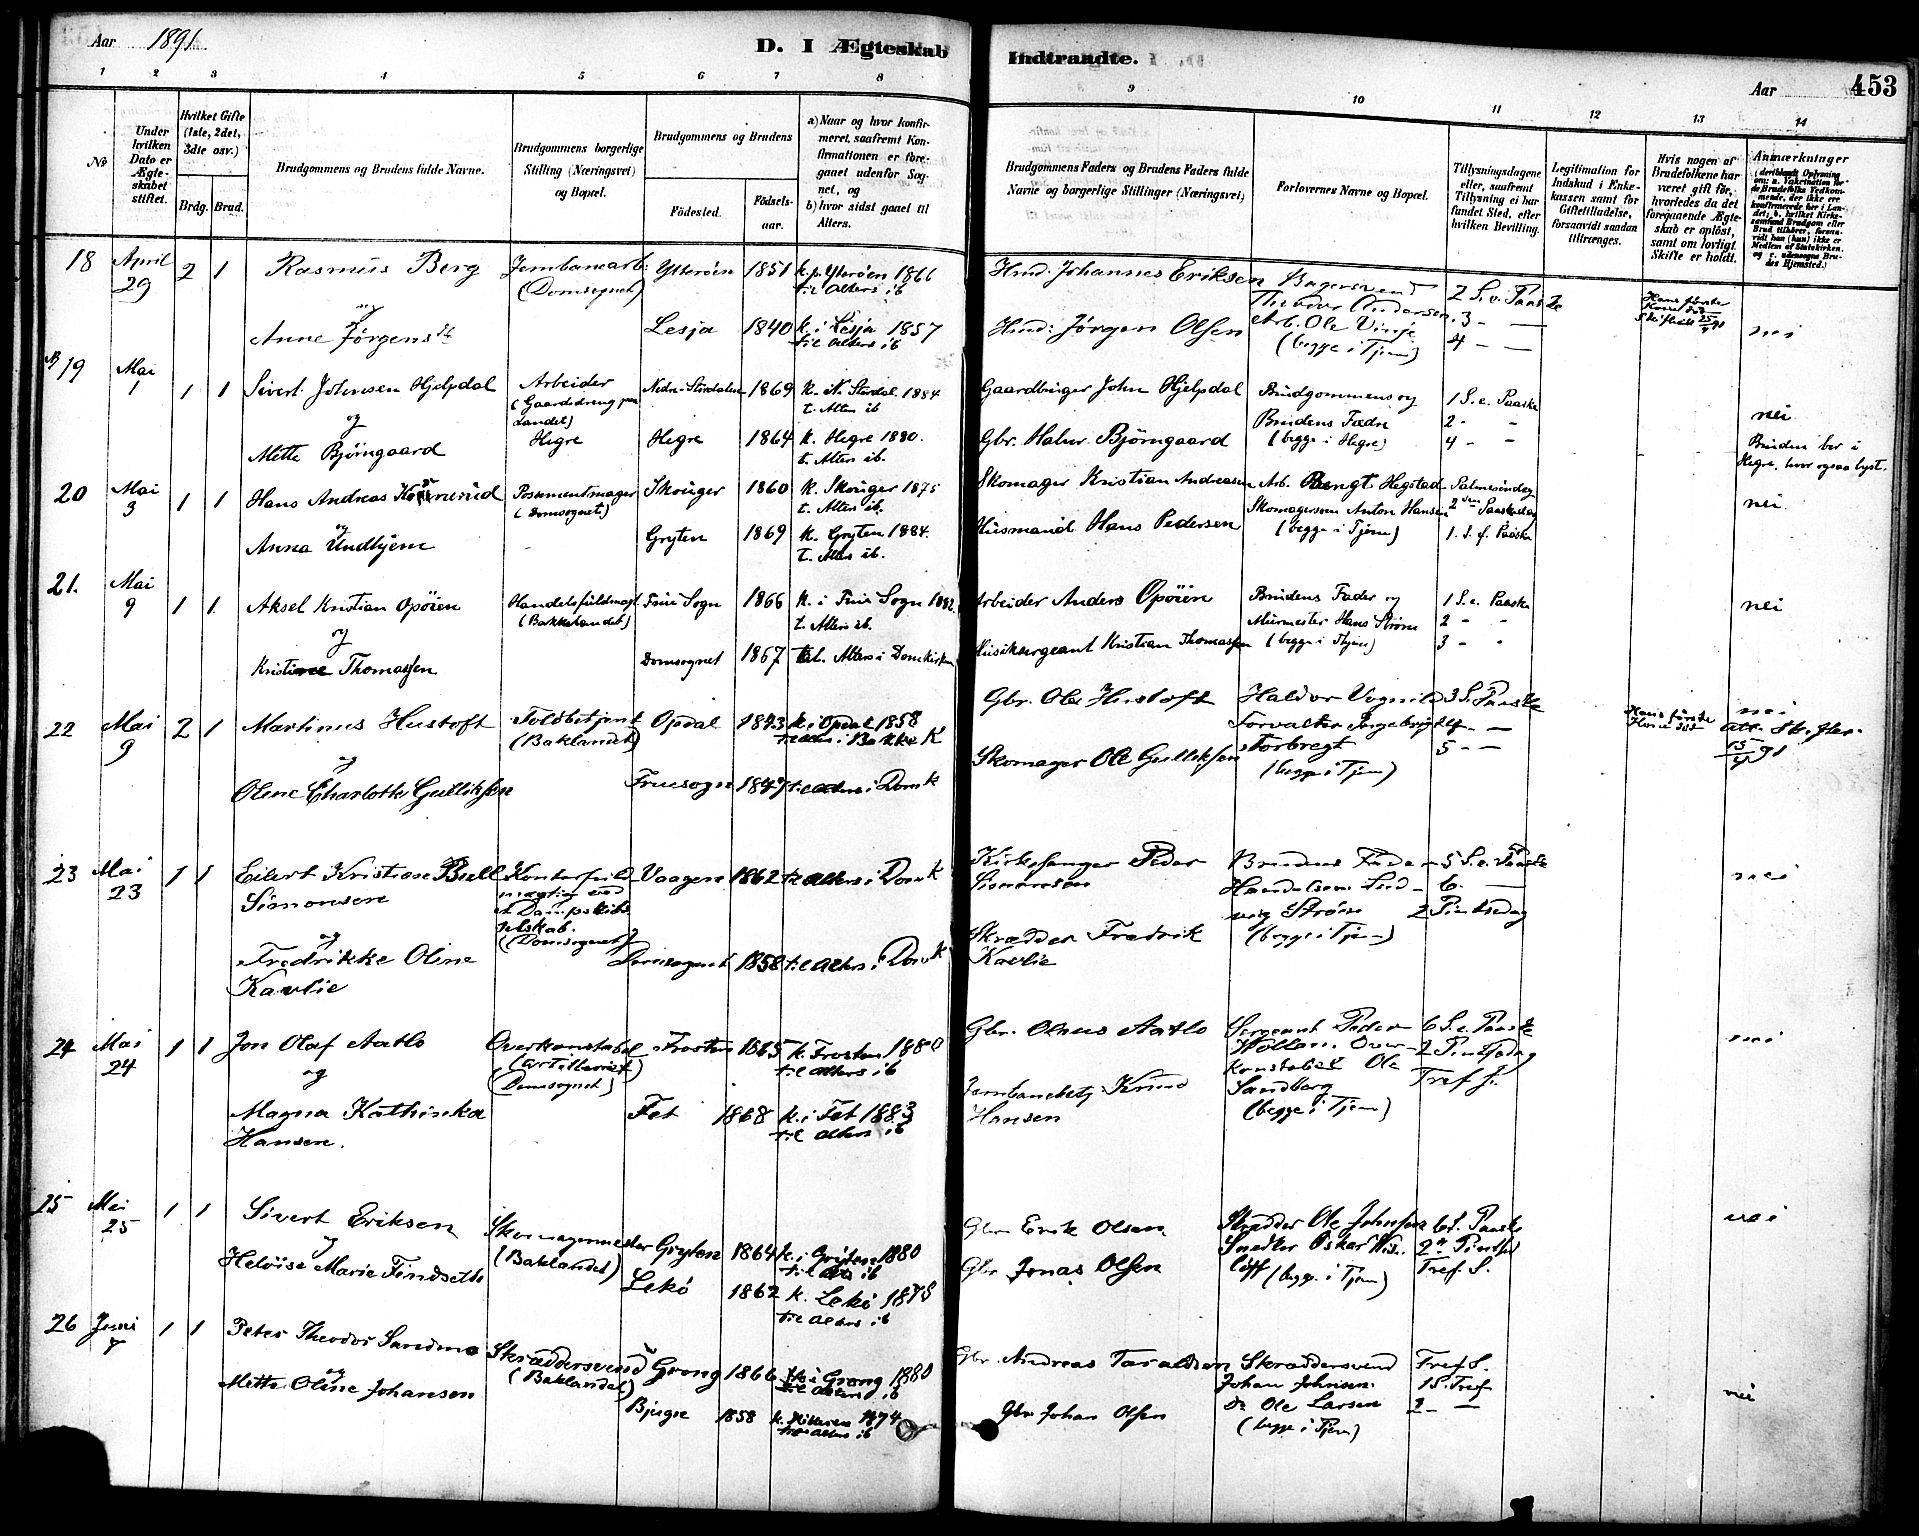 Aar 1891
D. I Ægteskab Indtraadte.
Aar 453
1 2 3 4 5 6 7 8 9 10 11 12 13 14
No
Under hvilken Dato er Ægteskabet stiftet.
Hvilket Gifte (1ste, 2det, 3die osv.)
Brdg. Brud.
Brudgommens og Brudens fulde Navne.
Brudgommens borgerlige Stilling (Næringsvei) og Bopæl.
Brudgommens og Brudens
Fødested.
Fødselsaar.
a) Naar og hvor konfirmeret, saafremt Konfirmationen er foregaaet udenfor Sognet, og
b) hvor sidst gaaet til Alters.
Brudgommens Faders og Brudens Faders fulde Navne og borgerlige Stillinger (Næringsvei)
Forlovernes Navne og Bopæl.
Tillysningsdagene eller, saafremt Tillysning ei har fundet Sted, efter hvilken Bevilling.
Legitimation for Indskud i Enkekassen samt for Giftetilladelse, forsaavidt saadan tiltrænges.
Hvis nogen af Brudefolkene har været gift før, hvorledes da det foregaaende Ægteskab er opløst, samt om lovligt Skifte er holdt.
Anmærkninger
18 April 29 2 1 Rasmus Berg Jernbanearb. (Domsognet) Ytterøen 1851 k. p. Ytterøen 1866 til Alters ib
Hmd. Johannes Eriksen Bagersvend Theodor Andersen 2 S. e. Paaske
og
Anne Jørgensdt. Lesja 1840 k. i Lesja 1857 til Alters ib
Hmd. Jørgen Olsen Arb. Ole Vinje (begge i Tjem) 3 - — 4 - — nei
19 Mai 1 1 1 Sivert Johnsen Hjelpdal Arbeider (Gaardsdreng paa Landet) Hegre Nedre-Stördalen 1869 k. i N. Stördal. 1884 t. Alters ib
Gaardbruger John Hjelpdal Brudgommens og Brudens Fædre (begge i Hegre) 1 S. e. Paaske 2 - - 4 - - nei
og
Mette Bjørngaard Hegre 1864 k. Hegre 1880. t. Alters ib.
Gbr. Halvor Bjørngaard Bruden bor i Hegre, hvor ogsaa lyst.
20 Mai 3 1 1 Hans Andreas Possementmager (Domsognet) Skouger 1860 k. Skouger 1875 t. Alters ib.
Skomager Kristian Andreasen Arb. Bengt Hegstad Palmesöndag nei
og
Anna Undhjem Gryten 1869 k. Gryten 1884. t. Alters ib.
Husmand Hans Pedersen Skomagersven Anton Hansen (begge i Tjem) 2den Paaskedag 1. S. e. Paaske
21. Mai 9 1 1. Aksel Kristian Opöien Handelsfuldmægt (Bakkelandet) Frue Sogn 1866 k. i Frue Sogn 1882 t. Alters ib.
Arbeider Anders Opöien Brudens Fader og 1 S. e. Paaske nei
og
Kristine Thomassen Domsognet 1867 til Alters i Domkirken
Musiksergeant Kristian Thomassen Murmester Hans Ström (begge i Tjem) 2 - - 3 - -
22 Mai 9 2 1 Martinus Hustoft Toldbetjent (Baklandet) Opdal 1843 k. i Opdal 1858 til Alters i Bakke K
Gbr. Ole Hustoft Haldor Vognild 3 S. e. Paaske Hans første Kone död nei
og
Oline Charlotte Gulliksen Fruesogn 1847 til Alters i Domk
Skomager Ole Gulliksen Forvalter Ingebrigt Storbregt (begge i Tjem) 4 - — 5 - — 15/4 91
23 Mai 23 1 1 Eilert Kristian Bull Simonsen Kontorfuldmægtig ved et Dampskibsselskab. (Domsognet) Vaagen 1862 til Alters i Domk
Kirkesanger Peder Simonsen Brudens Fader Handelsm. Ludvig Ström (begge i Tjem) 5 S. e. Paaske 6. — 2 Pintsedag nei
og
Fredrikke Oline Kavlie Domsognet 1858 til Alters i Domk
Skrædder Fredrik Kavlie
24 Mai 24 1 1 Jon Olaf Aatlo Overkonstabel (Artilleriet) (Domsognet) Frosten 1865 k. Frosten 1880 til Alters ib
Gbr. Olaus Aatlo Sergeant Peder Wollan Overkonstabel Ole Sandberg (begge i Tjem) 6 S. e. Paaske 2 Pintsedag Tref S. nei
og
Magna Kathinka Hansen. Fet 1868 k. i Fet 1883 til Alters ib
Jernbanebetj. Knud Hansen
25 Mai 25 1 1 Sivert Eriksen Skomagermester (Baklandet) Gryten 1864 k. i Gryten 1880 til Alters ib
Gbr. Erik Olsen Skrædder Ole Johnsen 6 S. Paaske nei
og
Heloise Marie Findseth Lekö 1862 k. Lekö 1878 til Alters ib
Gbr Jonas Olsen Snedker Oskar (begge i Tjem) 2n Pintsed Tref. S.
26 Juni 7 1 1 Peter Theodor Sandmo Skræddersvend (Baklandet) Grong 1866 k. i Grong 1880 til Alters ib
Gbr. Andreas Taraldsen Skræddersvend Johan Johnsen Tref S.
og
Mette Oline Johansen Bjugn 1858 k. Hitteren 1874 til Alters ib
Gbr Johan Olsen do Ole Larsen (begge i Tjem) 1 S. Tref 2 - — nei